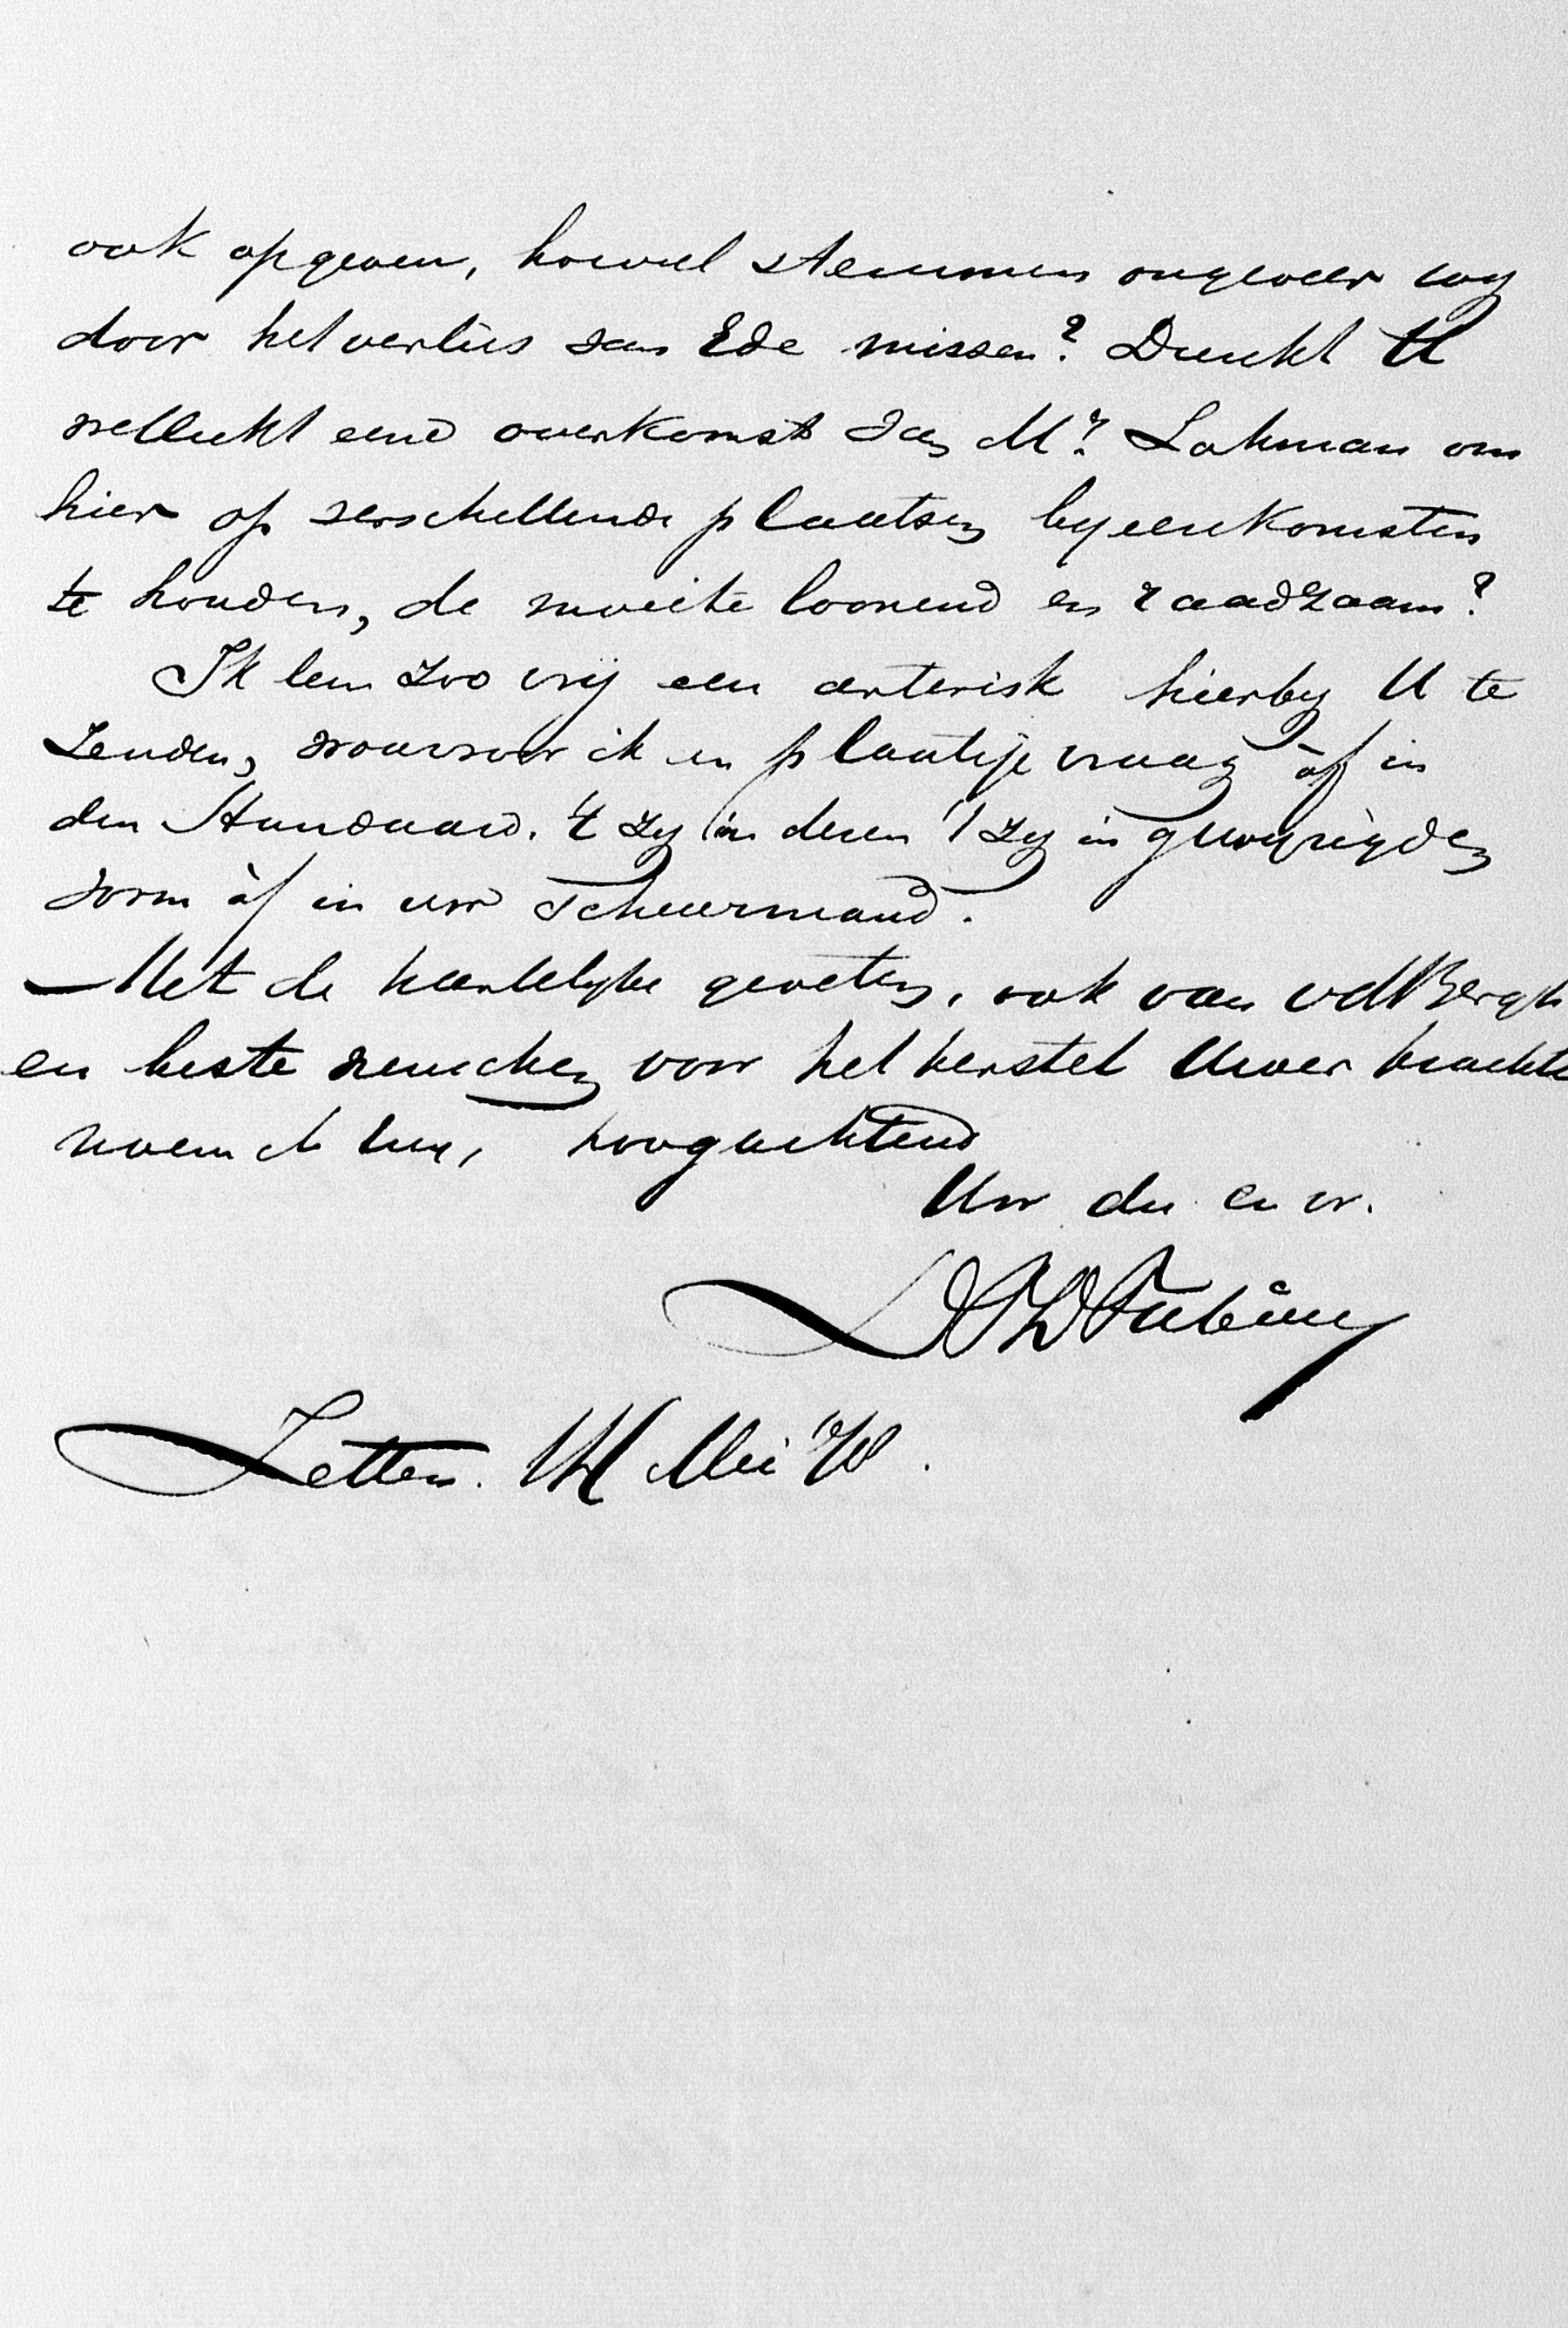 ook opgeven, hoeveel stemmen ongeveer wy
door het verlies van Ede missen? Dunkt U
wellicht eene overkomst van Mr. Lohman om
hier op verschillende plaatsen byeenkomsten
te houden, de moeite loonend en raadzaam?
Ik ben zoo vrij een asterisk hierby U te
zenden, waarvoor ik en plaatsje vraag òf in
den Standaard. 't zy in dezen 't zy in gewyzigden
vorm òf in uw scheurmand.
Met de hartelyke groeten, ook van vdBergh
en beste wenschen voor het herstel Uwer krachten
noem ik my, hoogachtend
Uw dw en vr.
Fabius
Zetten. Mei '78.